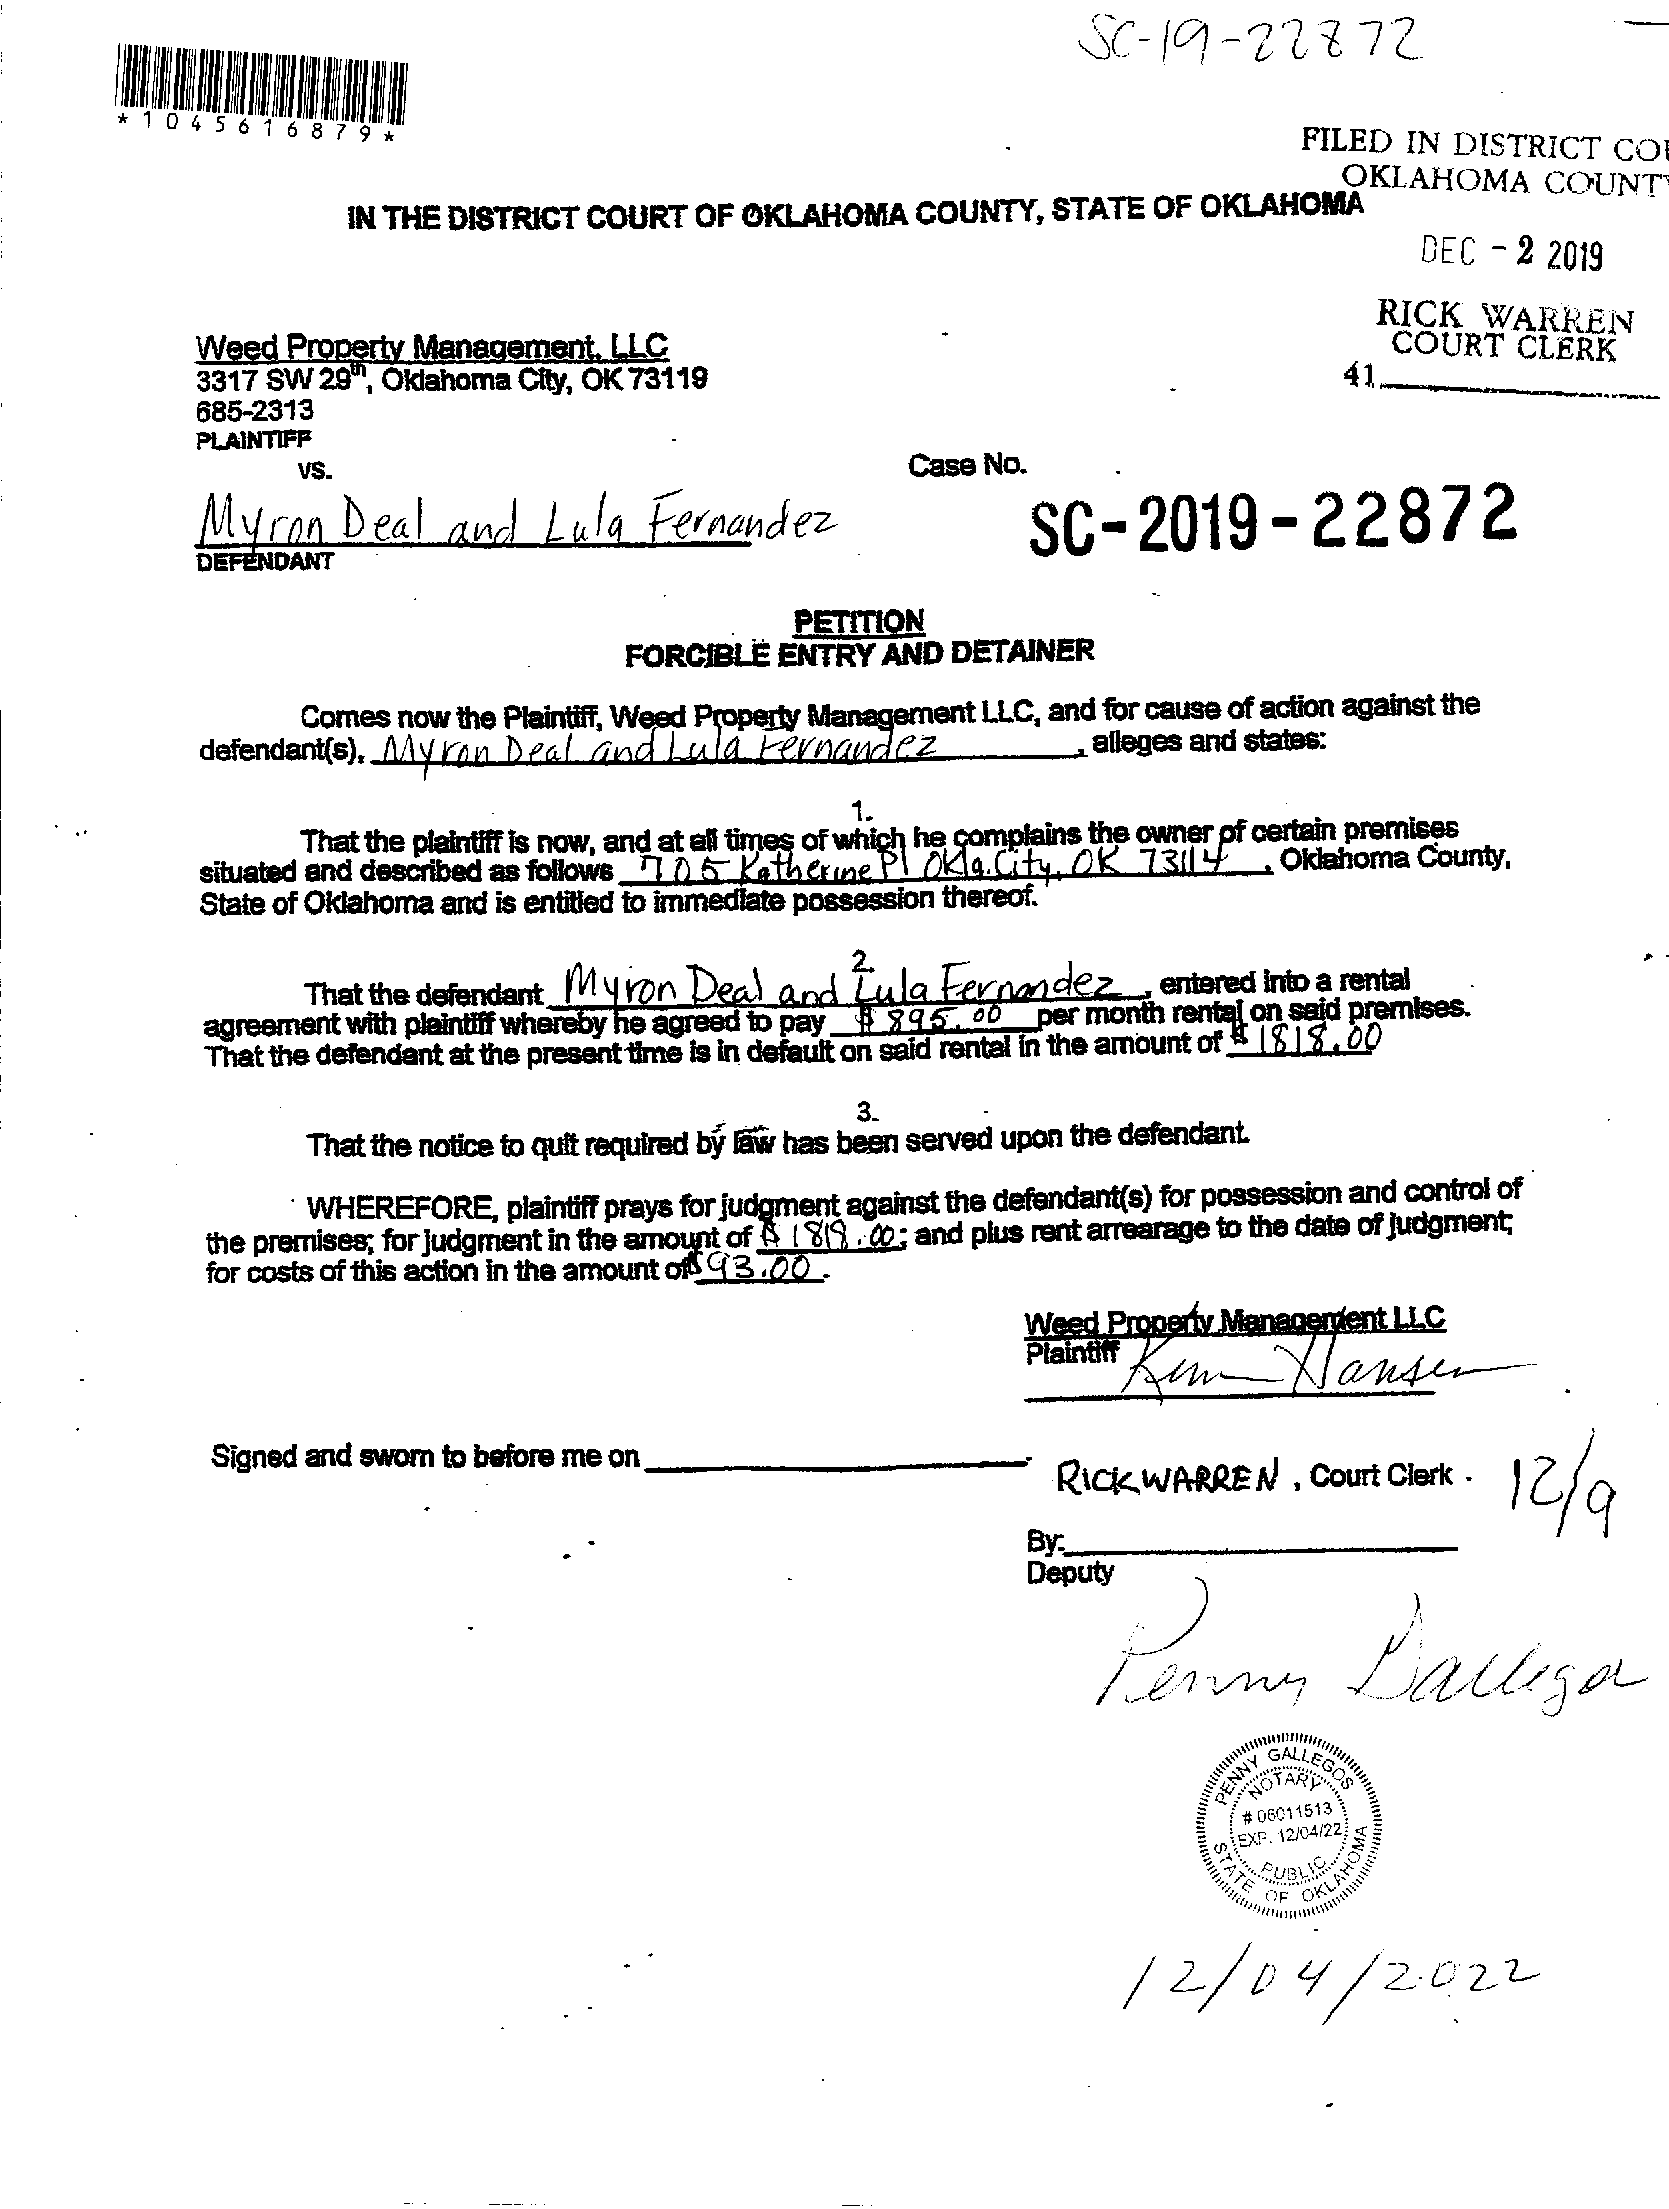 SC-19-22872
*1045616879*
FILED IN DISTRICT COU
OKLAHOMA COUNTY
IN THE DISTRICT COURT OF OKLAHOMA COUNTY, STATE OF OKLAHOMA
DEC - 2 2019
RICK WARREN
COURT CLERK
41
Weed Property Management, LLC
3317 SW 29th, Oklahoma City, OK 73119
685-2313
PLAINTIFF
vs.
Case No.
Myron Deal and Lula Fernandez
SC-2019-22872
DEFENDANT
PETITION
FORCIBLE ENTRY AND DETAINER
Comes now the Plaintiff, Weed Property Management LLC, and for cause of action against the
defendant(s), Myron Deal and Lula Fernandez, alleges and states:
1.
That the plaintiff is now, and at all times of which he complains the owner of certain premises
situated and described as follows 705 Katherine Pl Okla. City, OK 73114, Oklahoma County,
State of Oklahoma and is entitled to immediate possession thereof.
2.
That the defendant Myron Deal and Lula Fernandez, entered into a rental
agreement with plaintiff whereby he agreed to pay $895.00 per month rental on said premises.
That the defendant at the present time is in default on said rental in the amount of $1818.00
3.
That the notice to quit required by law has been served upon the defendant.
WHEREFORE, plaintiff prays for judgment against the defendant(s) for possession and control of
the premises; for judgment in the amount of $1818.00; and plus rent arrearage to the date of judgment;
for costs of this action in the amount of $93.00.
Weed Property Management LLC
Plaintiff Kim Hansen
Signed and sworn to before me on
RICK WARREN, Court Clerk. 12/9
By:
Deputy
Penny Gallegos
PENNY GALLEGOS
NOTARY
# 06011513
EXP. 12/04/22
PUBLIC
STATE OF OKLAHOMA
12/04/2022